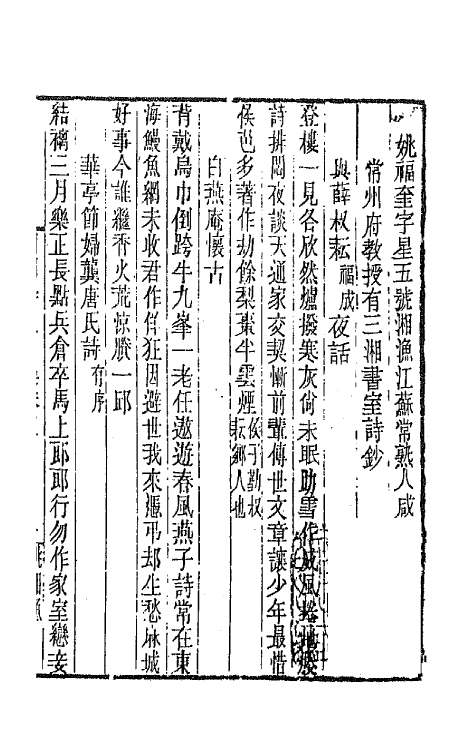 姚福奎字星五號湘漁江蘇常熟人咸
常州府教授有三湘書室詩鈔
與薛叔耘福成夜話
登樓一見各欣然爐撥寒灰尙未眠助雪作威風
詩排悶夜談天通家交契慚前輩傳世文章讓少年最惜
侯芭多著作劫餘梨棗半雲煙侯子勤叔耘鄉人也
白燕庵懷古
背戴烏巾倒跨牛九峯一老任遨遊春風燕子詩常在東
海鰻魚網未收君作佯狂因避世我來憑弔却生愁麻城
好事今誰繼香火荒涼賸一邱
華亭節婦龔唐氏詩有序
結褵三月樂正長點兵倉卒馬上郞郞行勿作家室戀妾